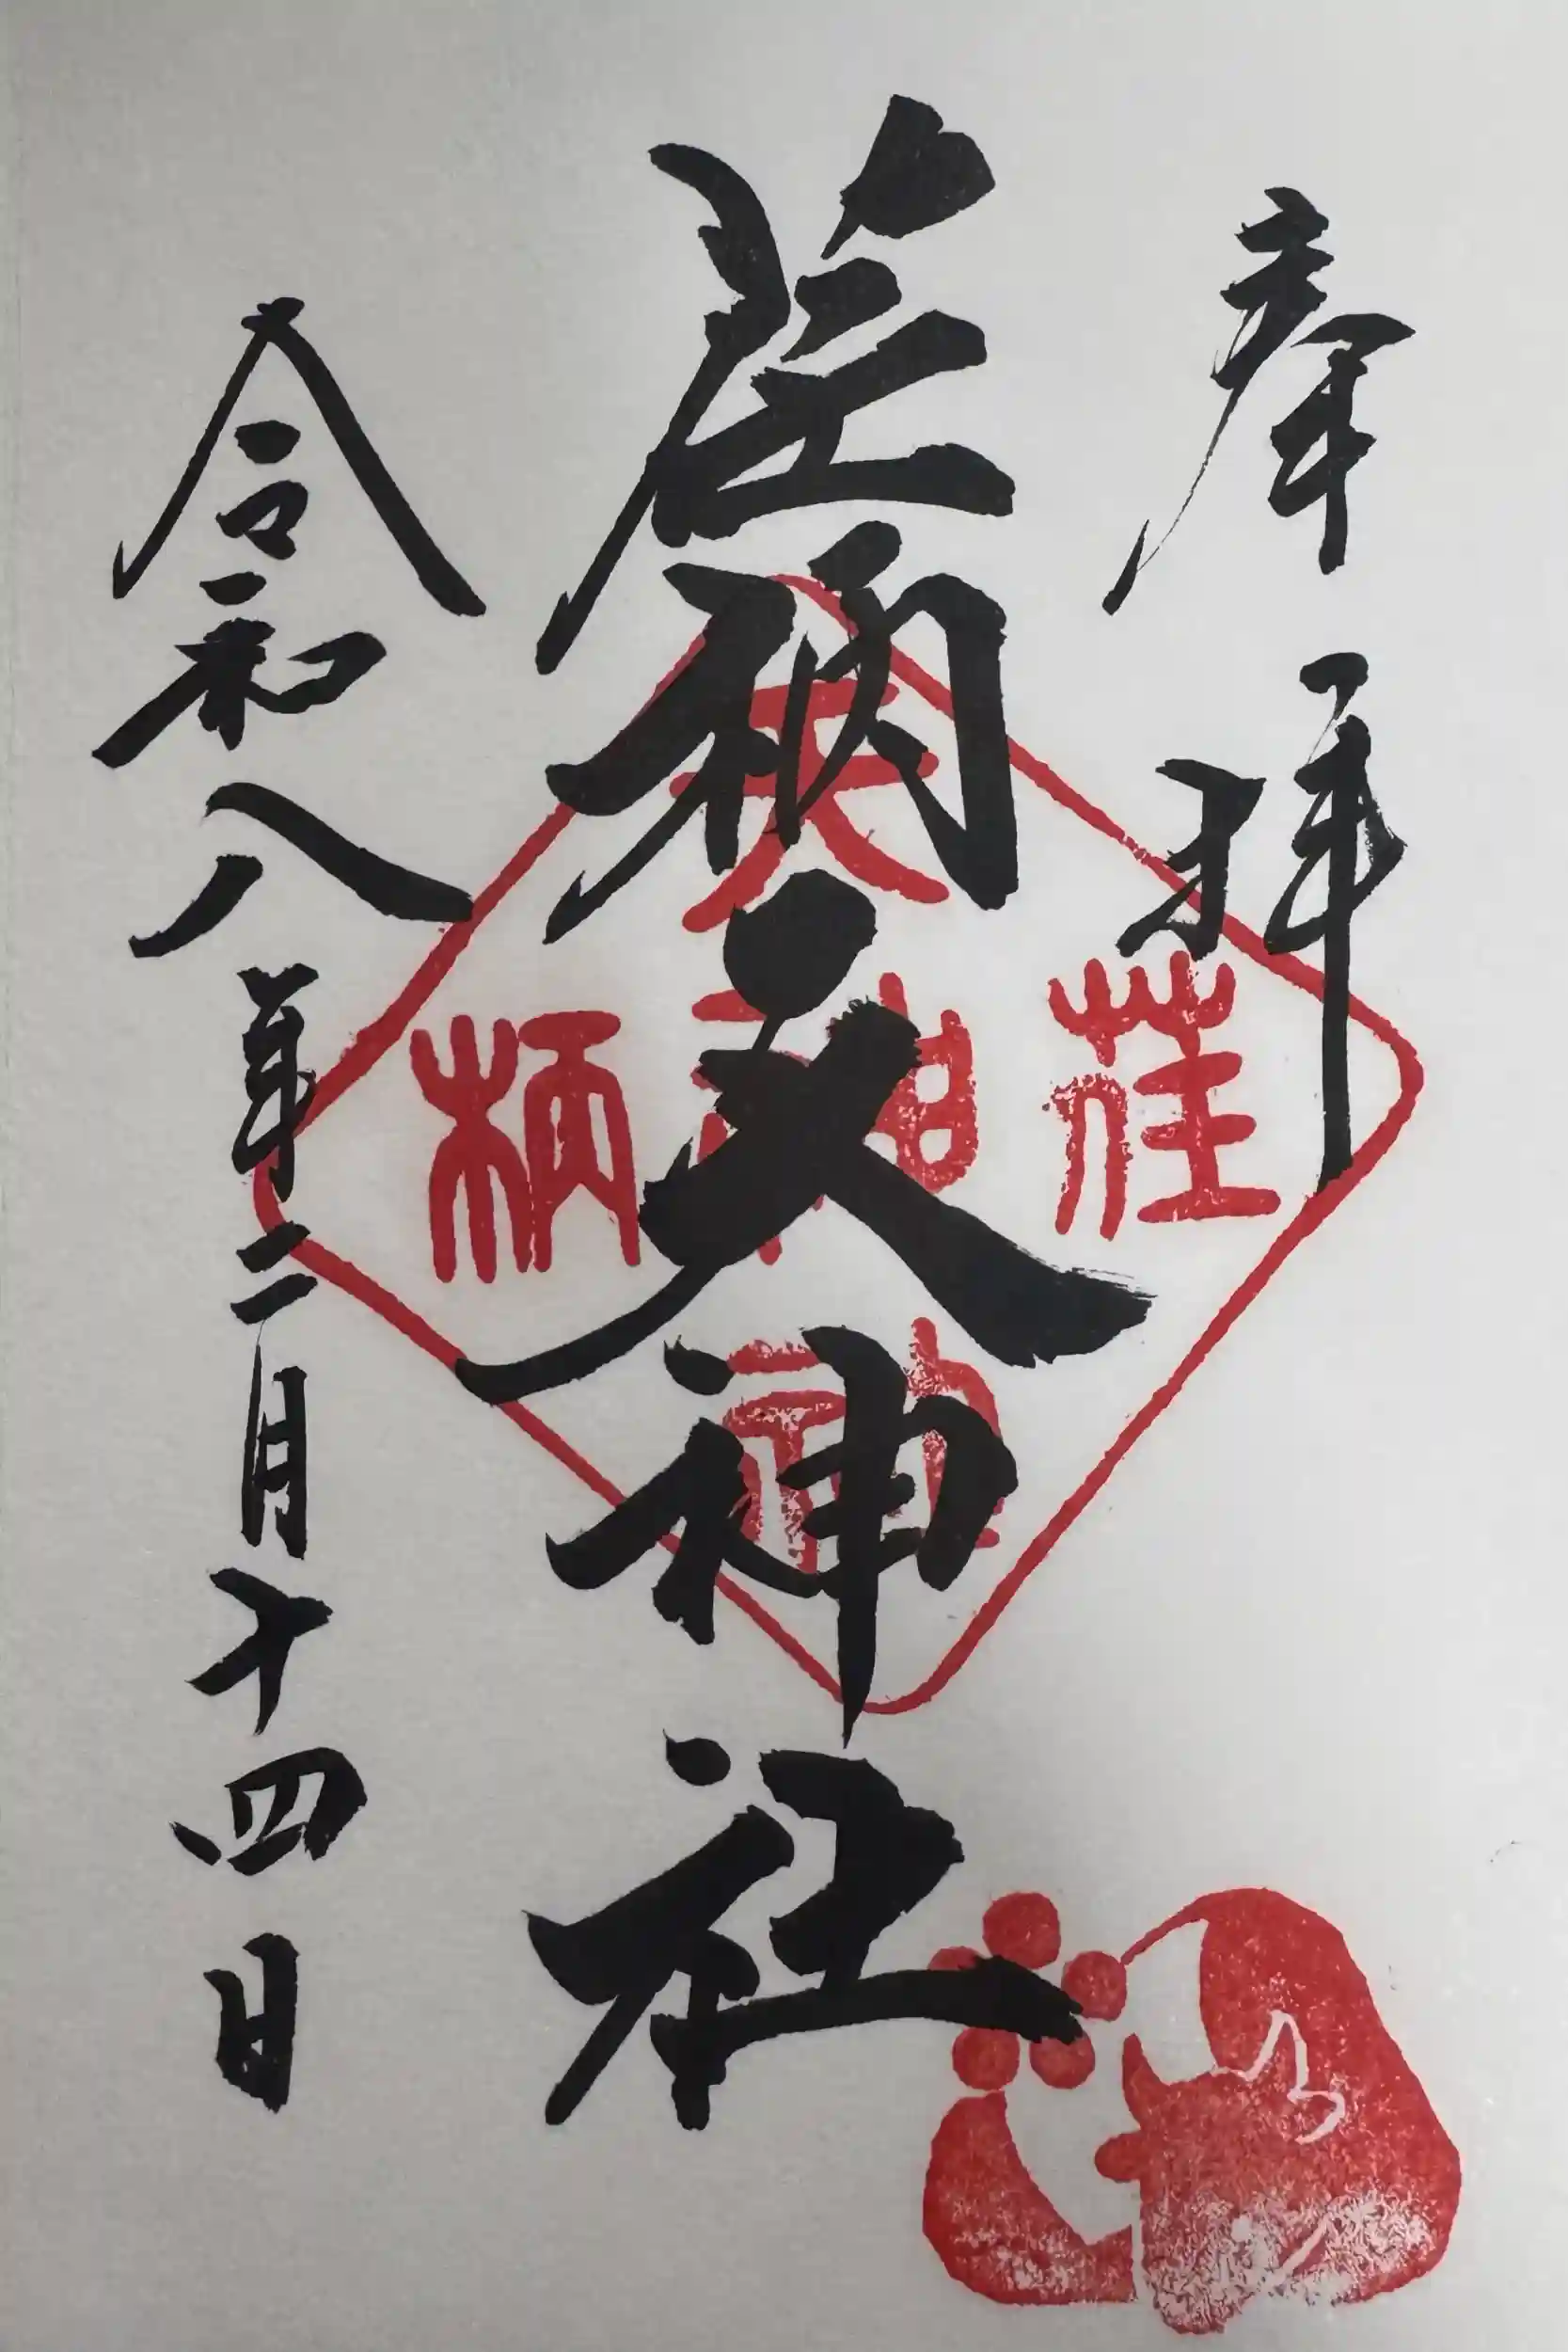 奉拝
荏柄天神社
令和八年二月十四日
荏柄天神